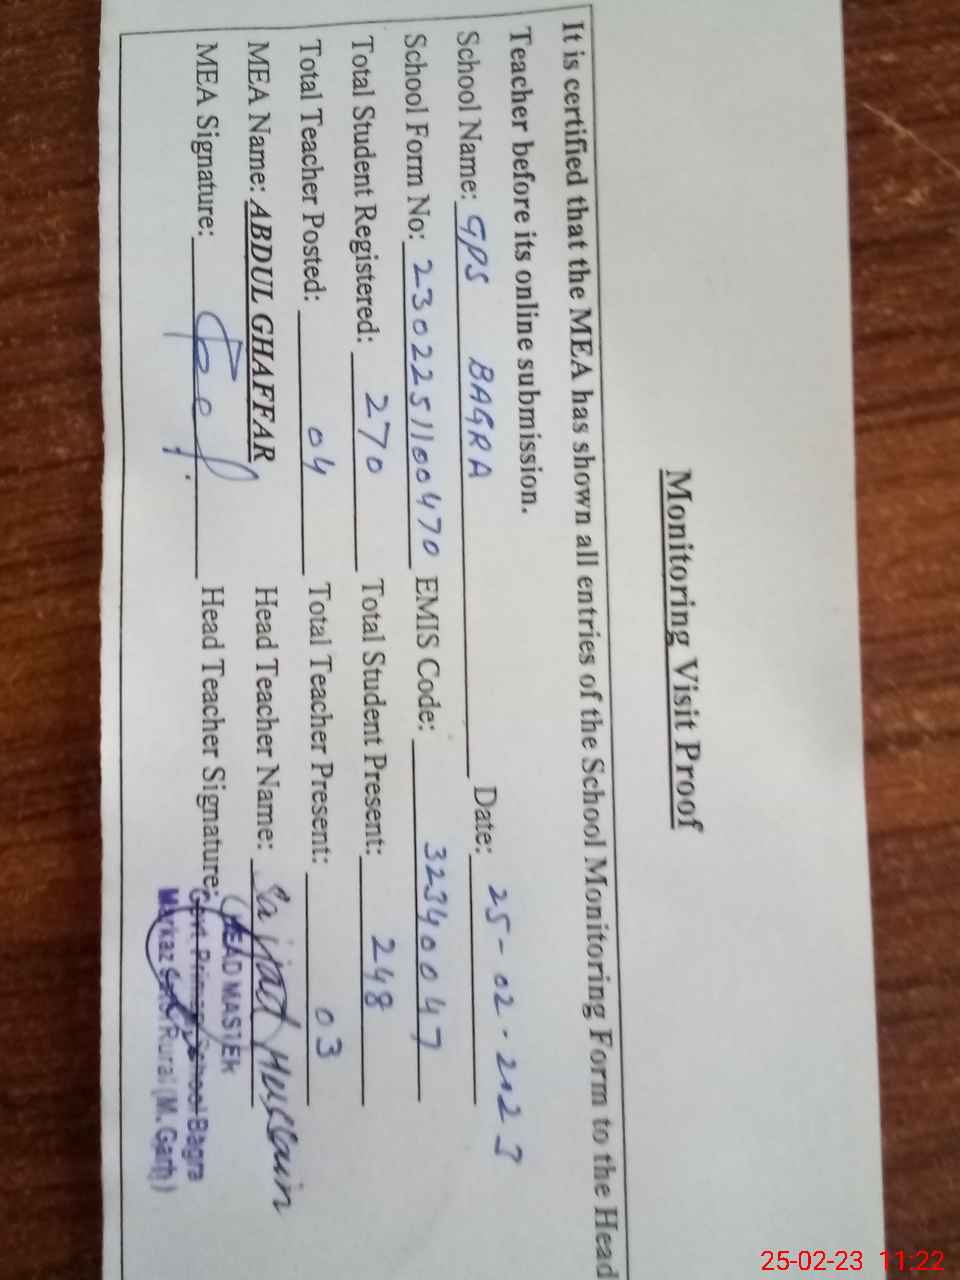 Monitoring Visit Proof
It is certified that the MEA has shown all entries of the School Monitoring Form to the Head
Teacher before its online submission.
School Name: GPS BAGRA Date: 25-02-2023
School Form No: 2302251100470 EMIS Code: 32340047
Total Student Registered: 270 Total Student Present: 248
Total Teacher Posted: 04 Total Teacher Present: 03
MEA Name: ABDUL GHAFFAR Head Teacher Name: Sajjad Hussain
MEA Signature: Head Teacher Signature:
HEAD MASTER
Govt. Primary School Bagra
Markaz Rural (M. Garh)
25-02-23 11:22